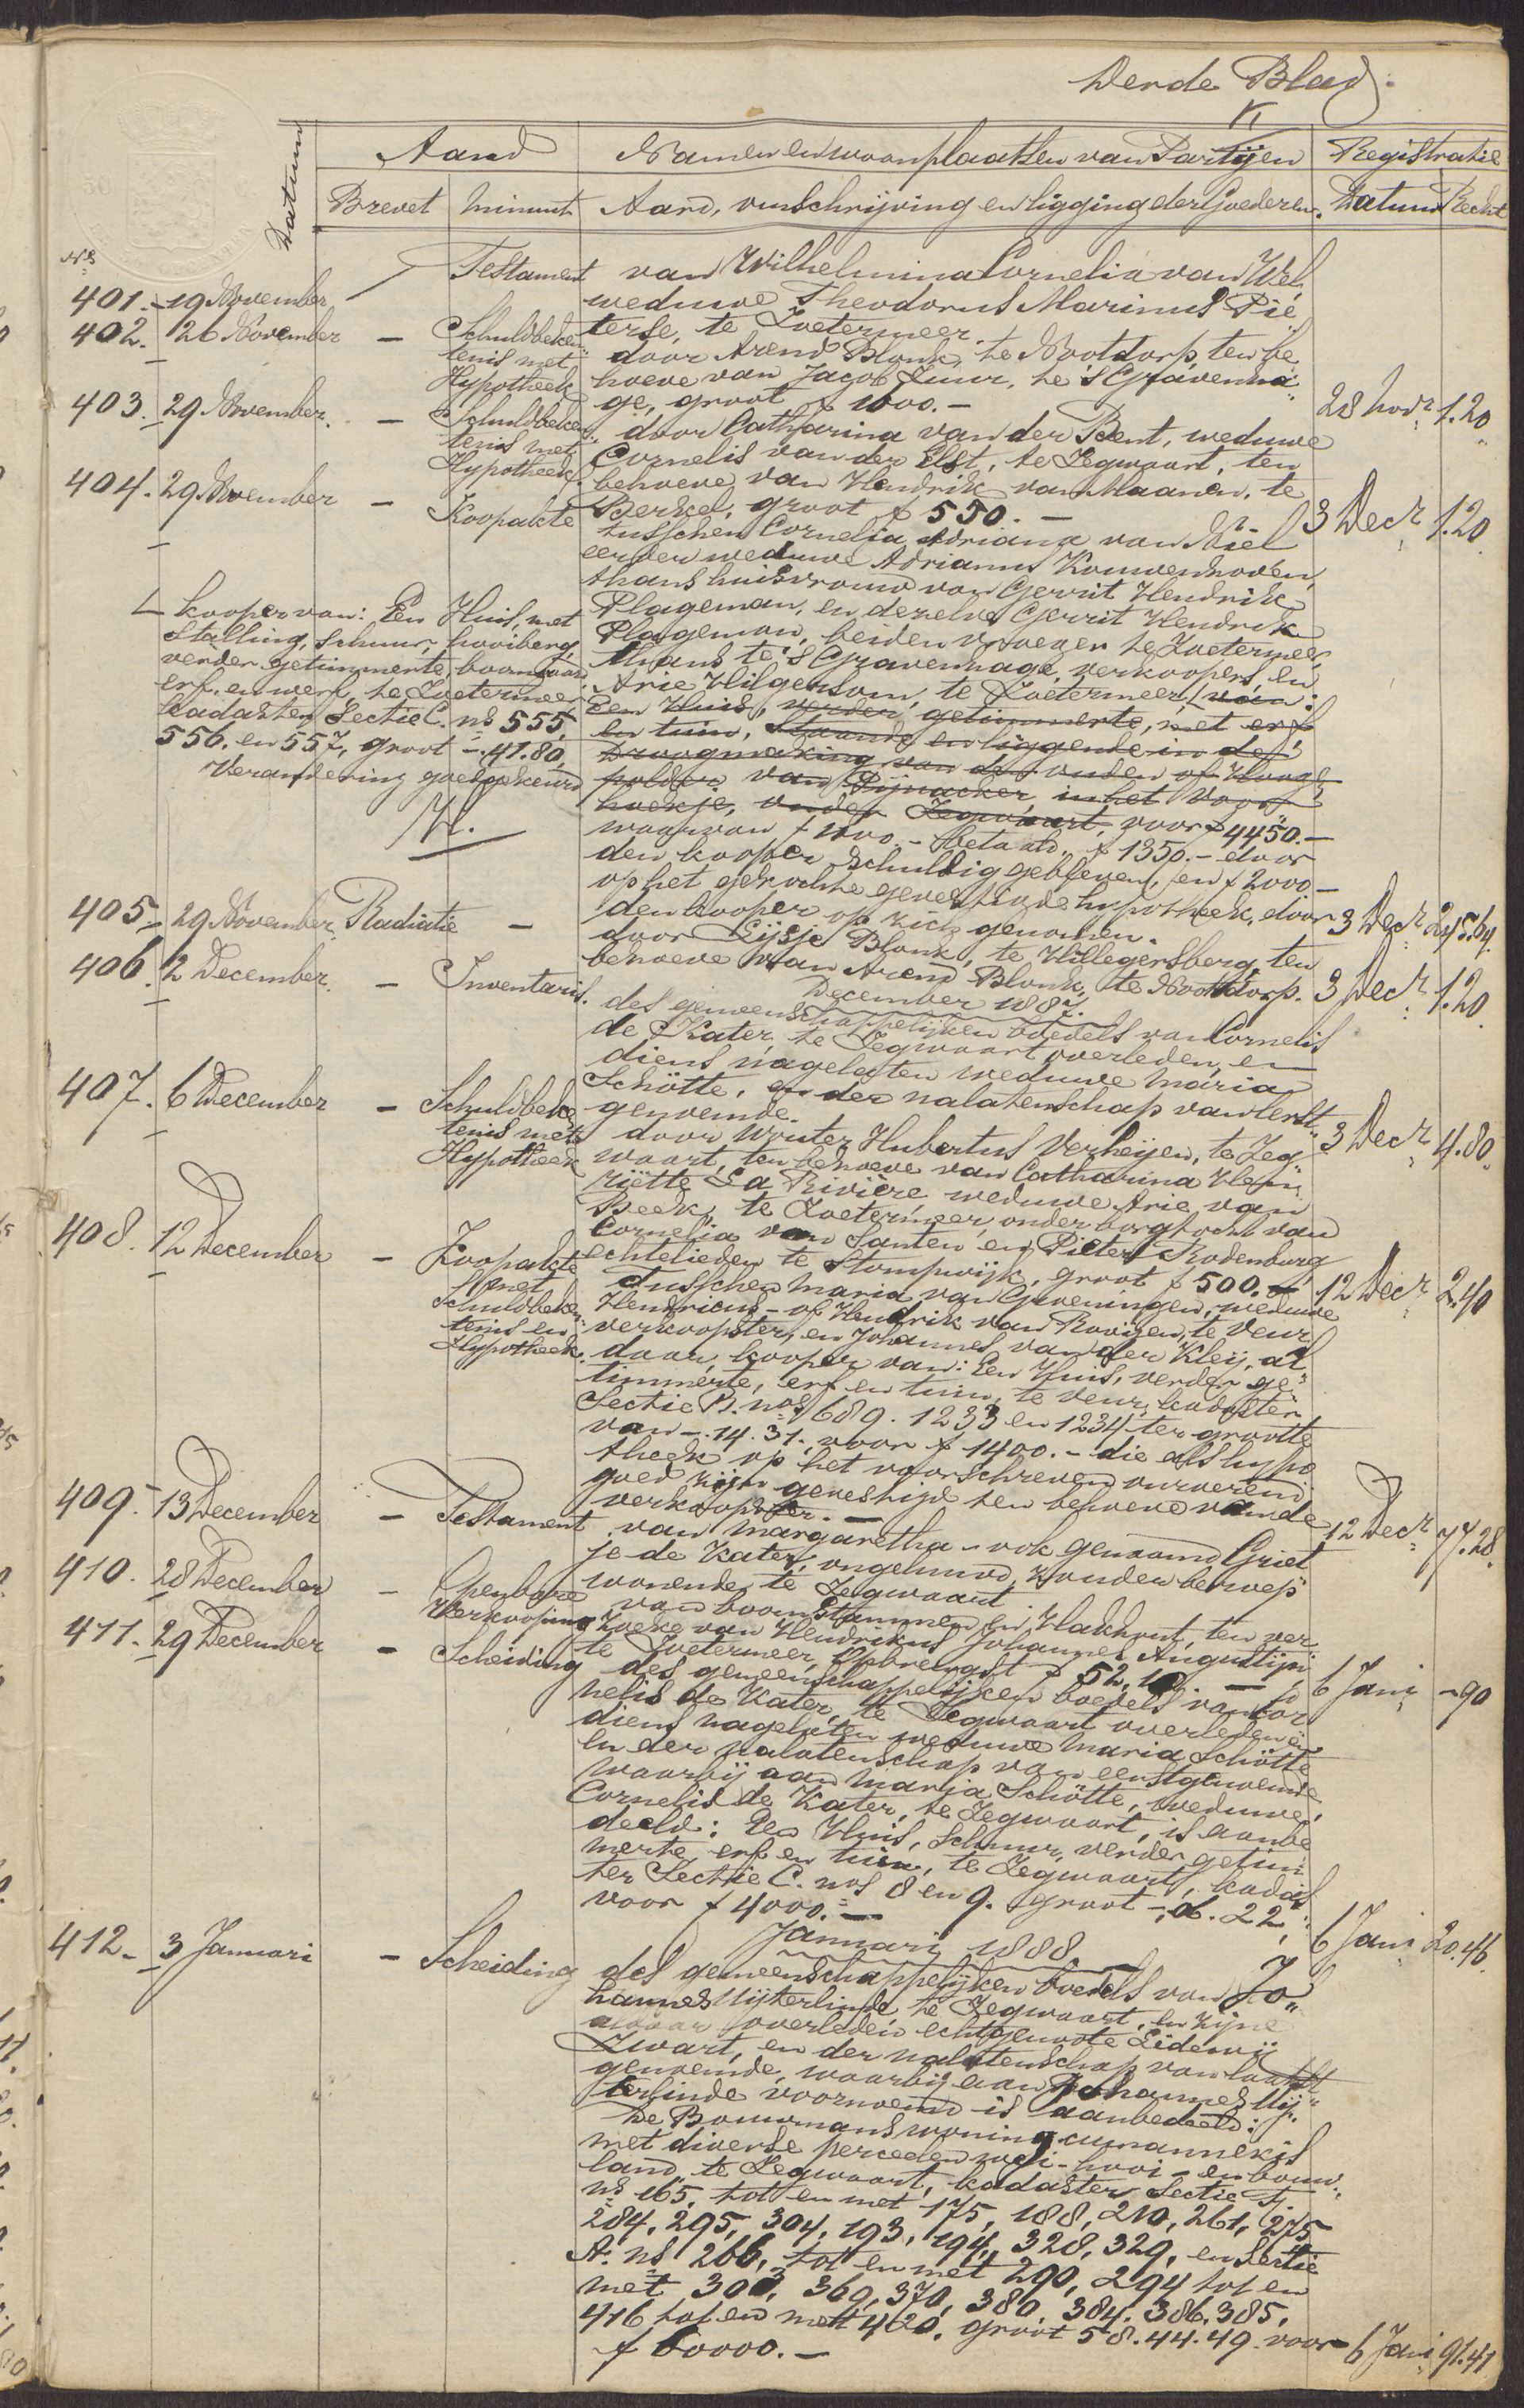 Derde Blad.
Datum
Aard
Namen en woonplaatsen van Partijen
Registratie
Brevet
Minuut
Aard, omschrijving en ligging der Goederen.
Datum
Recht
No
401. 19 November
Testament van Wilhelmina Cornelia van Wel,
weduwe Theodorus Marinus Pie„
terse, te Zoetermeer.
402. 26 November
-
Schuldbeken„
tenis met
Hypotheek
door Arend Blonk, te Nootdorp, ten be„
hoeve van Jacob Zuur, te 'sGravenha„
ge, groot ƒ 1000.-
28 Novr 1.20
403. 29 November.
-
Schuldbeken„
tenis met
Hypotheek.
door Catharina van der Bent, weduwe
Cornelis van der Elst, te Zegwaart, ten
behoeve van Hendrik van Maanen, te
Berkel, groot ƒ 550.-
3 Decr 1.20
404. 29 November
-
Koopakte
tusschen Cornelia Adriana van Niel
eerder weduwe Adrianus Kouwenhoven,
thans huisvrouw van Gerrit Hendrik
Plageman, en dezelve Gerrit Hendrik
Plageman, beiden vroeger te Zoetermeer
thans te 'sGravenhage, verkoopers, en
Arie Hilgersom, te Zoetermeer, van:
Een Huis, verder getimmerte, met erf
en tuin, staande en liggende in de
Droogmaking van den ouden of Hooge
polder van Pijnacker, in het Voor
hoekje, onder Zegwaart, voor ƒ 4450.-
waarvan ƒ 1000.- betaald, ƒ 1350.- door
den kooper schuldig gebleven, en ƒ 2000-
op het gekochte gevestigde hypotheek, door
den kooper op zich genomen.
3 Decr 245.64
kooper van: Een Huis, met
stalling, schuur, hooiberg,
verder getimmerte, boomgaard,
erf, en werf, te Zoetermeer,
kadaster Sectie C. no 555,
556, en 557, groot -.41.80,
Verandering goedgekeurd
405. 29 November
Radiatie
-
door Eijsje Blonk, te Hillegersberg, ten
behoeve van Arend Blonk, te Nootdorp.
3 Decr 1.20
December 1887.
406. 2 December.
-
Inventaris.
des gemeenschappelijken boedels van Cornelis
de Kater, te Zegwaart overleden, en
diens nagelaten weduwe Maria
Schötte, en der nalatenschap van eerst„
genoemde.
3 Decr 4.80
407. 6 December
-
Schuldbeke„
tenis met
Hypotheek
door Wouter Hubertus Verheijen, te Zeg„
waart, ten behoeve van Catharina Hen„
riëtte La Rivière weduwe Arie van
Beek, te Zoetermeer, onder borgtocht van
Cornelia van Santen en Pieter Rodenburg
echtelieden te Stompwijk, groot ƒ 500.-
12 Decr 2.40
408. 12 December
-
Koopakte
met
Schuldbeke„
tenis en
Hypotheek.
Tusschen Maria van Groeningen, weduwe
Hendricus - of Hendrik van Rooijen, te Veur
verkoopster, en Johannes van der Kleij, al„
daar, kooper van: Een Huis, verder ge„
timmerte, erf en tuin, te Veur, kadaster
Sectie B. nos 689. 1233 en 1234, ter grootte
van -.14.31, voor ƒ 1400.- die als hypo
theek op het voorschreven onroerend
goed zijn gevestigd ten behoeve van de
verkoopster.-
12 Decr 77.28
409. 13 December
-
Testament
van Margaretha - ook genaamd Griet
je de Kater, ongehuwd, zonder beroep
wonende te Zegwaart
410. 28 December
-
Openbare
Verkooping
van boomstammen en Hakhout, ten ver„
zoeke van Hendrikus Johannes Augustijn
te Zoetermeer, opbrengst ƒ 52,10.-
6 Jani -90
411. 29 December
-
Scheiding
des gemeenschappelijken boedels van Cor
nelis de Kater, te Zegwaart overleden en
diens nagelaten weduwe Maria Schötte
en der nalatenschap van eerstgenoemde
waarbij aan Maria Schötte, weduwe,
Cornelis de Kater, te Zegwaart, is aanbe
deeld: Een Huis, schuur, verder getim
merte, erf en tuin, te Zegwaart, kadas
ter Sectie C. nos 8 en 9. groot -.6.22,
voor ƒ 4000.-
6 Jani 20.46.
Januari 1888.
412. 3 Januari
-
Scheiding
des gemeenschappelijken boedels van Jo„
hannes Uijterlinde te Zegwaart, en zijne
aldaar overleden echtgenoote Lidewij
Zwart, en der nalatenschap van laatst
genoemde, waarbij aan Johannes Uij„
terlinde voornoemd is aanbedeeld:
De Bouwmanswoning cumannexis
met diverse perceelen wei- hooi- en bouw„
land, te Zegwaart, kadaster Sectie
no 165, tot en met 175, 188, 210, 261, 275
284, 295, 304, 193, 194, 328, 329, en Sectie
A. no 266, tot en met 290, 294 tot en
met 300, 369, 370, 380, 384. 386. 385,
416 tot en met 420, groot 58.44.49. voor
ƒ 60000.-
6 Jani 91.41